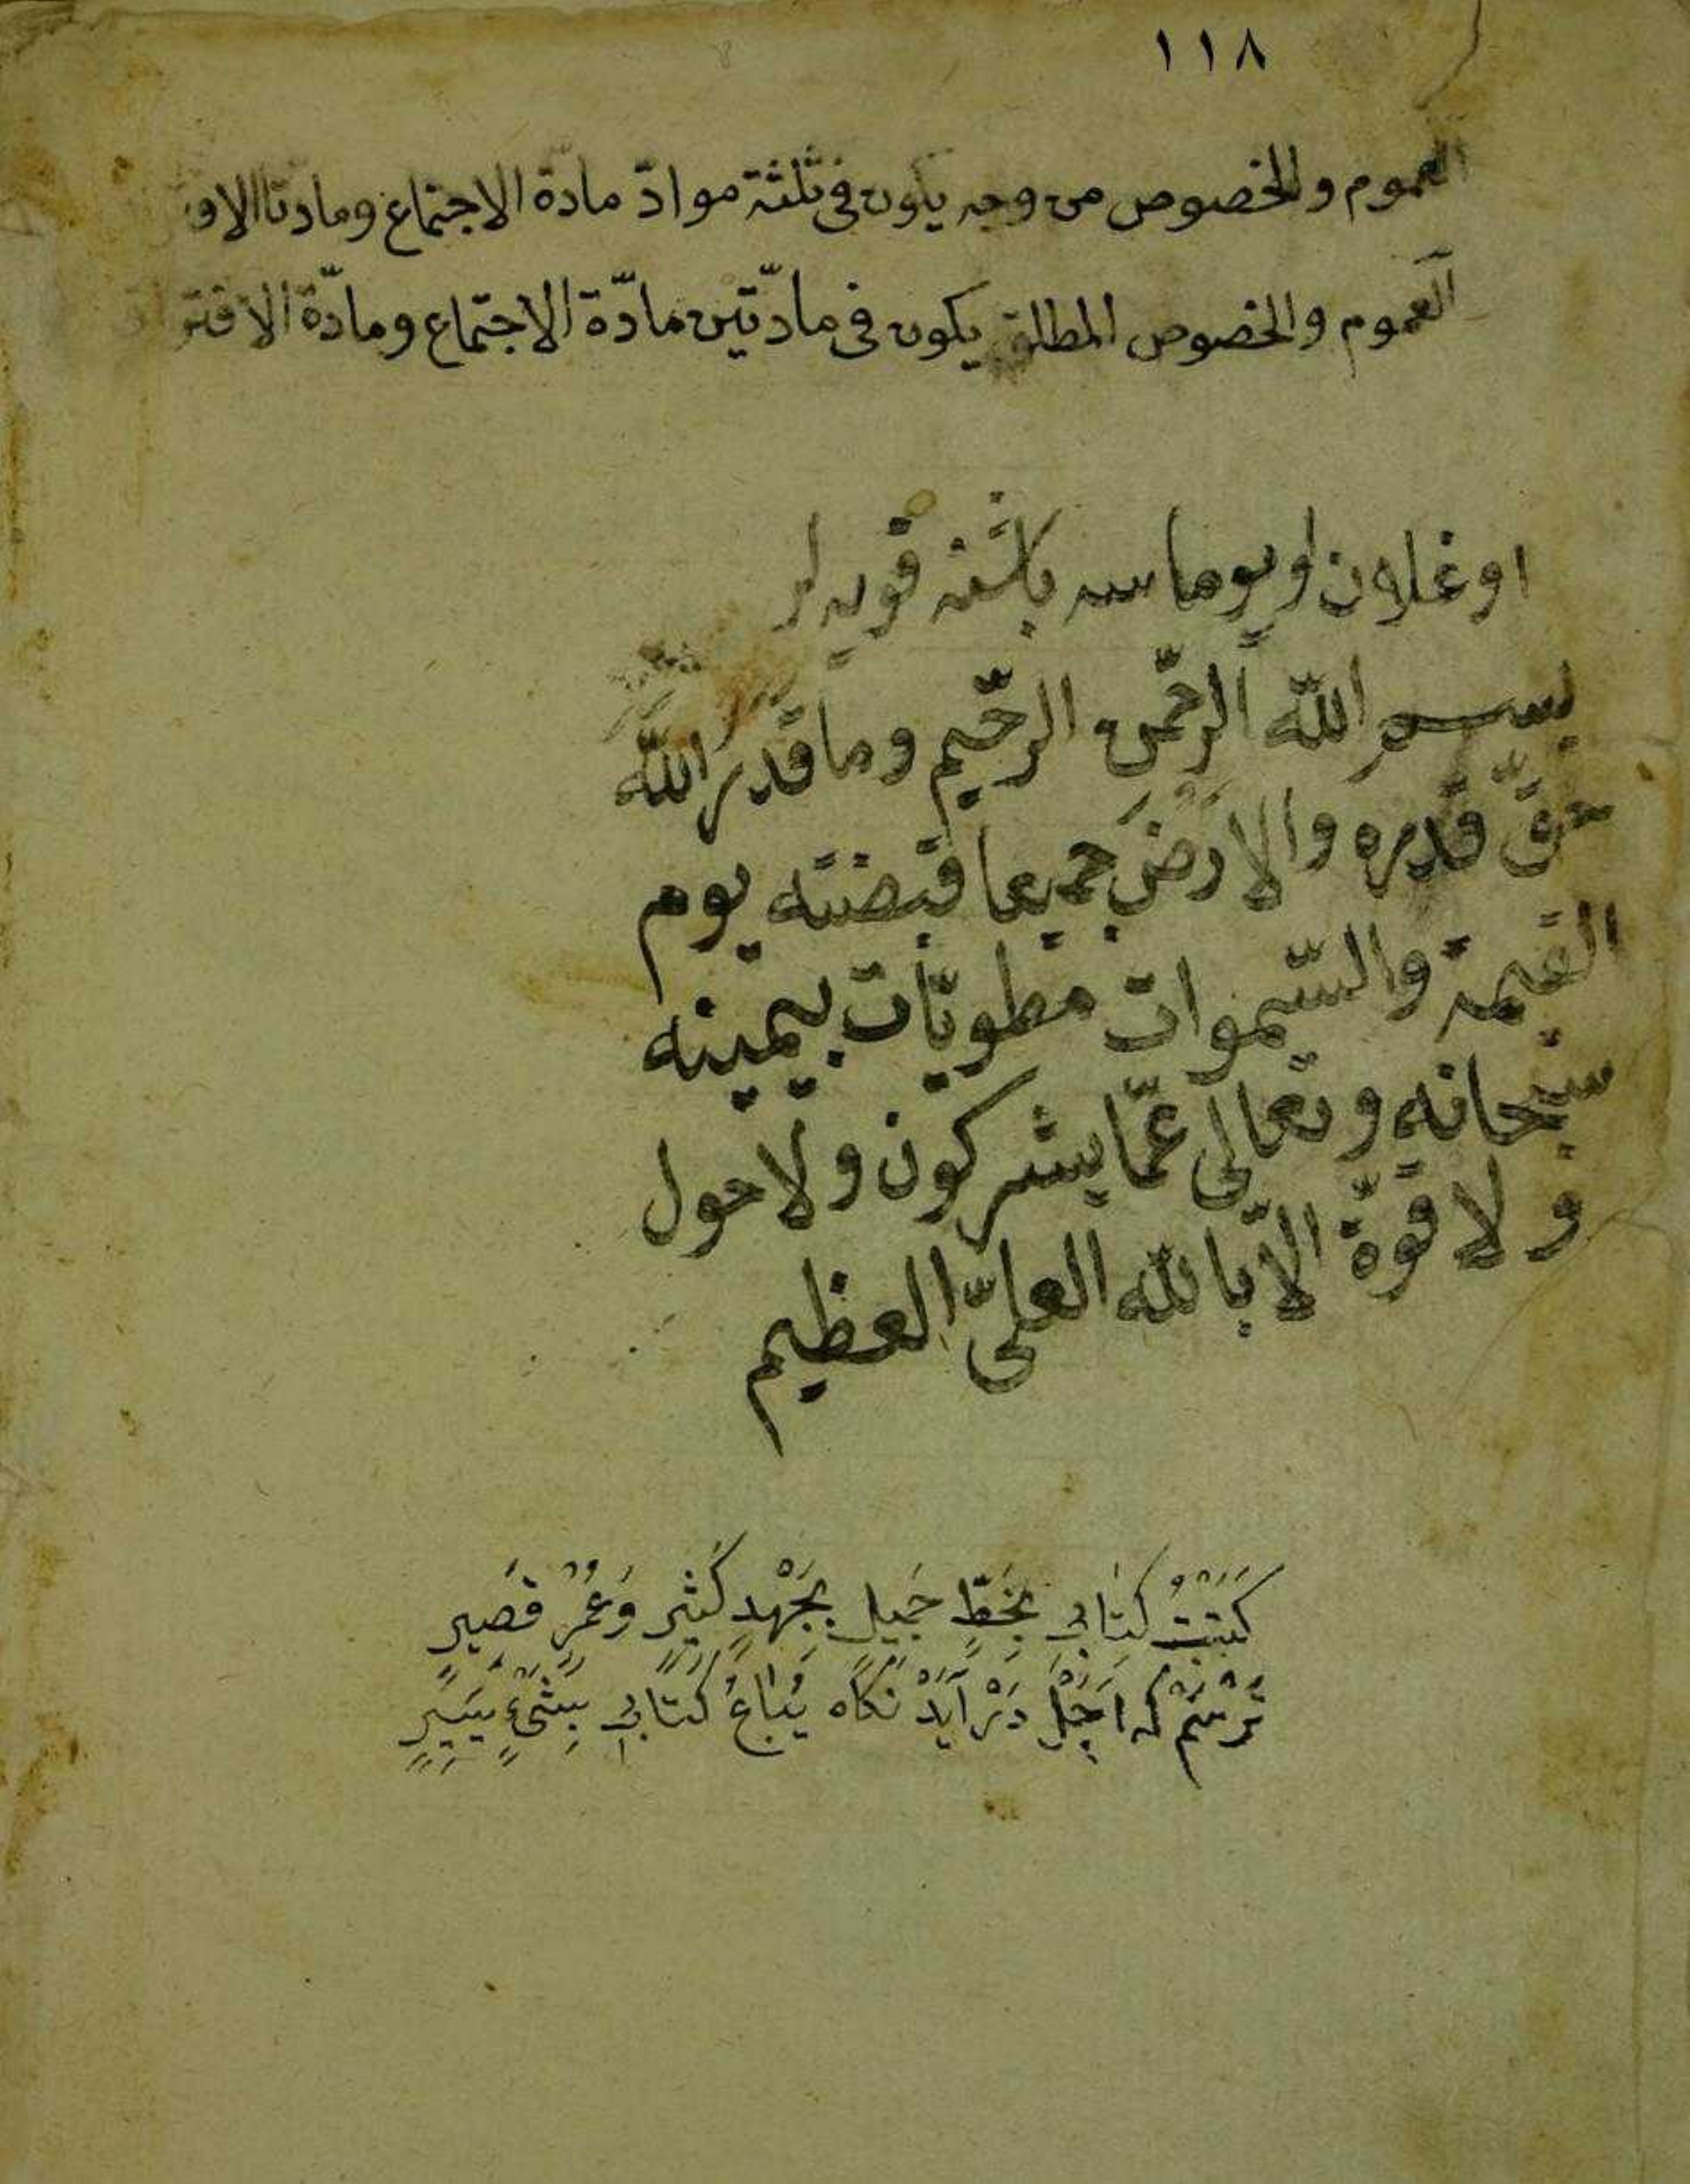 ١١٨
العموم والخصوص من وجه يكون فى ثلثة موادّ مادة الاجتماع ومادتا الاف
العموم والخصوص المطلق يكون فى مادّتين مادّة الاجتماع ومادّة الافتر
اوغلان اويوماسه باشنه قويه لر
بسم الله الرحمن الرحيم وما قدر الله
حقّ قدره والارض جميعا قبضته يوم
القيمة والسّموات مطويّات بيمينه
سبحانه وتعالى عمّا يشركون ولا حول
ولا قوّة الاّ بالله العلىّ العظيم
كَتَبْتُ كِتَابِى بِخَطٍّ جَمِيلٍ بِجَهْدٍ كَثِيرٍ وَعُمْرٍ قَصِيرٍ
تَرْسَمْ كه اَجَلْ دَرْ آيَدْ نَكَاه يُبَاعُ كِتَابِى بِشَىْءٍ يَسِيرٍ